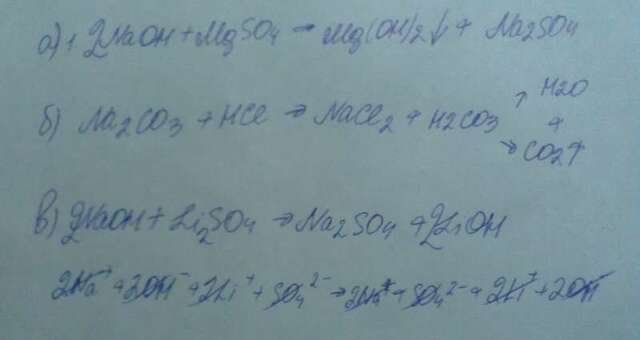 а) 2NaOH + MgSO4 → Mg(OH)2↓ + Na2SO4
б) Na2CO3 + HCl → NaCl2 + H2CO3 ↗ H2O
+
↘ CO2↑
в) 2NaOH + Li2SO4 → Na2SO4 + 2LiOH
2Na⁺ + 2OH⁻ + 2Li⁺ + SO4²⁻ → 2Na⁺ + SO4²⁻ + 2Li⁺ + 2OH⁻